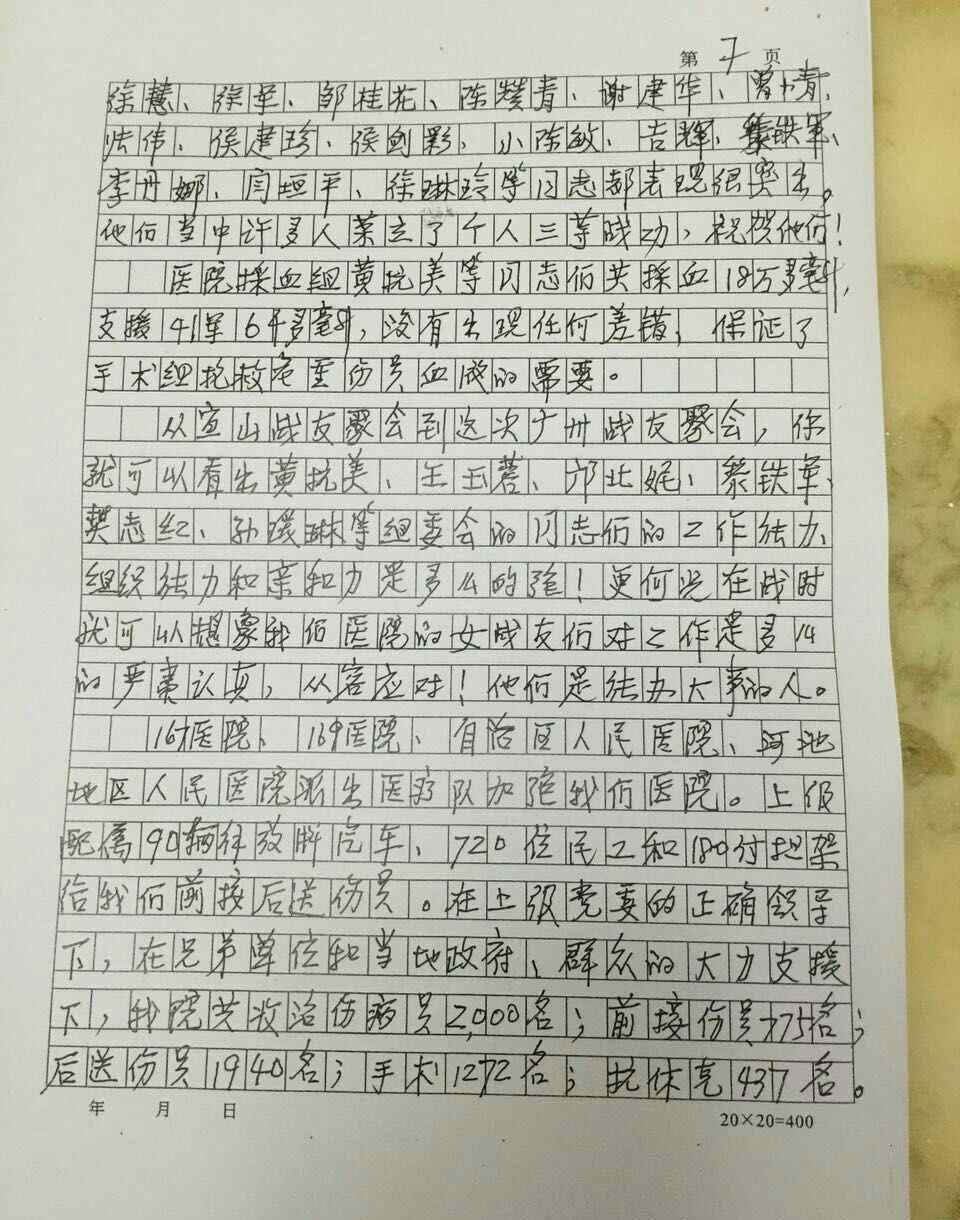 第 7 页
徐慧、徐军、邹桂花、陈赞青、谢建华、曾小青、
伟、侯建珍、侯剑影、小陈敏、吉辉、黎铁军、
李丹娜、闫垣平、徐琳玲等同志都表现很突出。
他们当中许多人荣立了个人三等战功，祝贺他们！
医院採血组黄抗美等同志们共採血18万多毫升，
支援41军6千多毫升，没有出现任何差错，保证了
手术组抢救危重伤员血液的需要。
从宜山战友聚会到这次广州战友聚会，你
就可以看出黄抗美、王玉蓉、邝北妮、黎铁军、
樊志红、孙瑛琳等组委会的同志们的工作能力、
组织能力和亲和力是多么的强！更何况在战时
就可以想象我们医院的女战友们对工作是多么
的严肃认真，从容应对！他们是能办大事的人。
167医院、169医院、自治区人民医院、河池
地区人民医院派出医疗队加强我们医院。上级
配属90辆解放牌汽车、720位民工和180付担架
给我们前接后送伤员。在上级党委的正确领导
下，在兄弟单位和当地政府、群众的大力支援
下，我院共收治伤病员2,000名；前接伤员775名；
后送伤员1940名；手术1272名；抗休克437名。
年 月 日
20×20=400